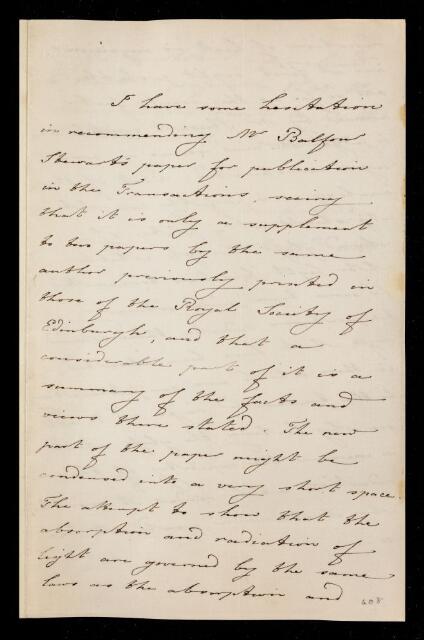 I have some hesitation
in recommending Mr Balfour
Stewart's paper for publication
in the Transactions, seeing
that it is only a supplement
to two papers by the same
author previously printed in
those of the Royal Society of
Edinburgh, and that a
considerable part of it is a
summary of the facts and
views there stated. The new
part of the paper might be
condensed into a very short space.
The attempt to show that the
absorption and radiation of
light are governed by the same
laws as the absorption and
608